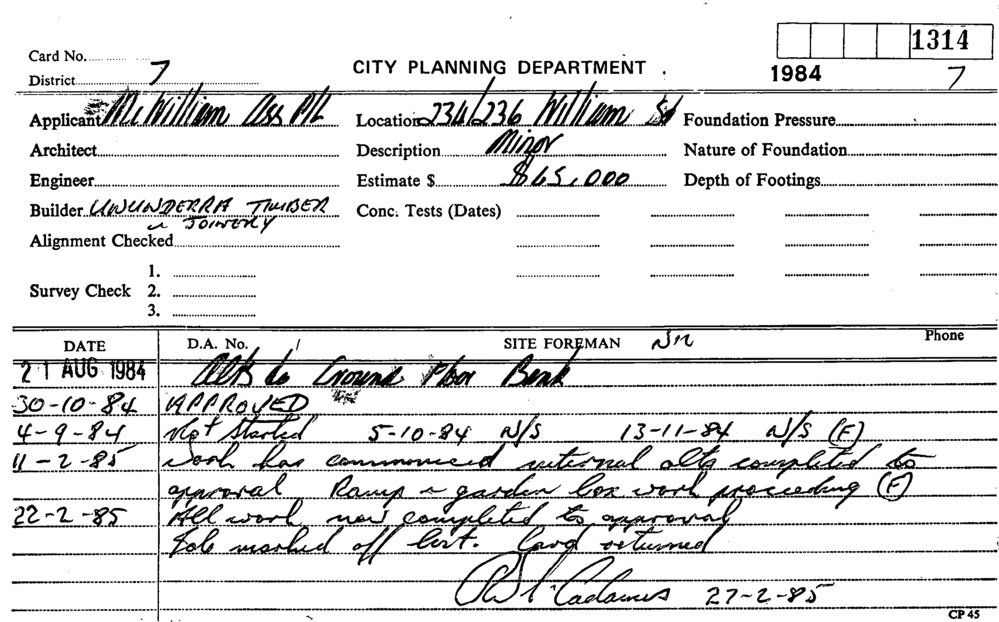 1314
Card No.
District 7
CITY PLANNING DEPARTMENT
1984 7
Applicant McWilliam Ass P/L
Location 234/236 William St
Foundation Pressure
Architect
Description Minor
Nature of Foundation
Engineer
Estimate $ $65,000
Depth of Footings
Builder TIMBER
& JOINERY
Conc. Tests (Dates)
Alignment Checked
1.
Survey Check 2.
3.
DATE D.A. No. / SITE FOREMAN Phone
21 AUG 1984 Alts to Ground Floor Bank
30-10-84 APPROVED
4-9-84 Not Started 5-10-84 N/S 13-11-84 N/S (F)
11-2-85 Work has commenced internal alts completed to
approval Ramp & garden box work proceeding (F)
22-2-85 All work now completed to approval
Job marked off list. Card returned
27-2-85
CP 45